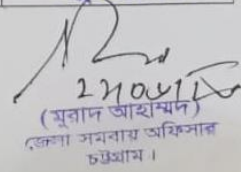 (মুরাদ আহাম্মদ)
জেলা সমবায় অফিসার
চট্টগ্রাম।